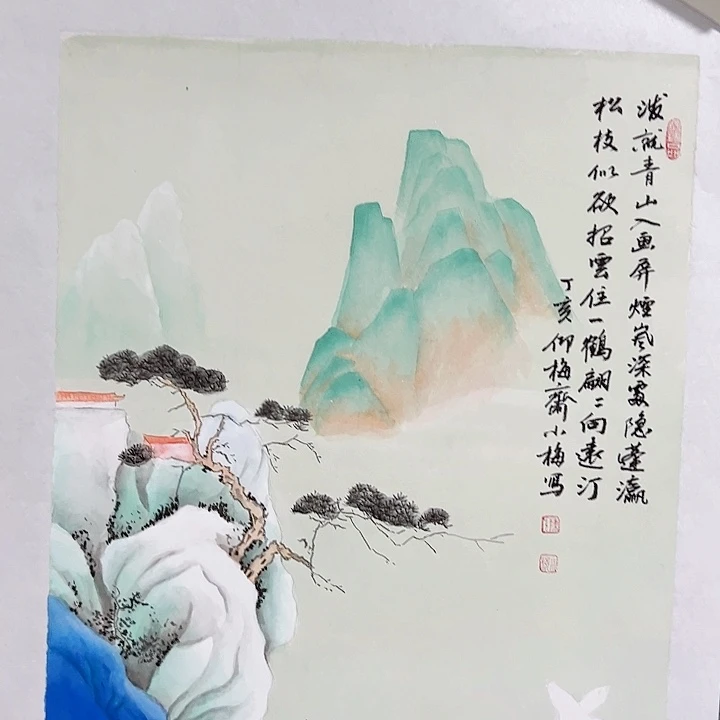 泼就青山入画屏烟岚深处隐蓬瀛
松枝似欲招雲住一鶴翩〻向遠汀
丁亥仰梅齋小梅写